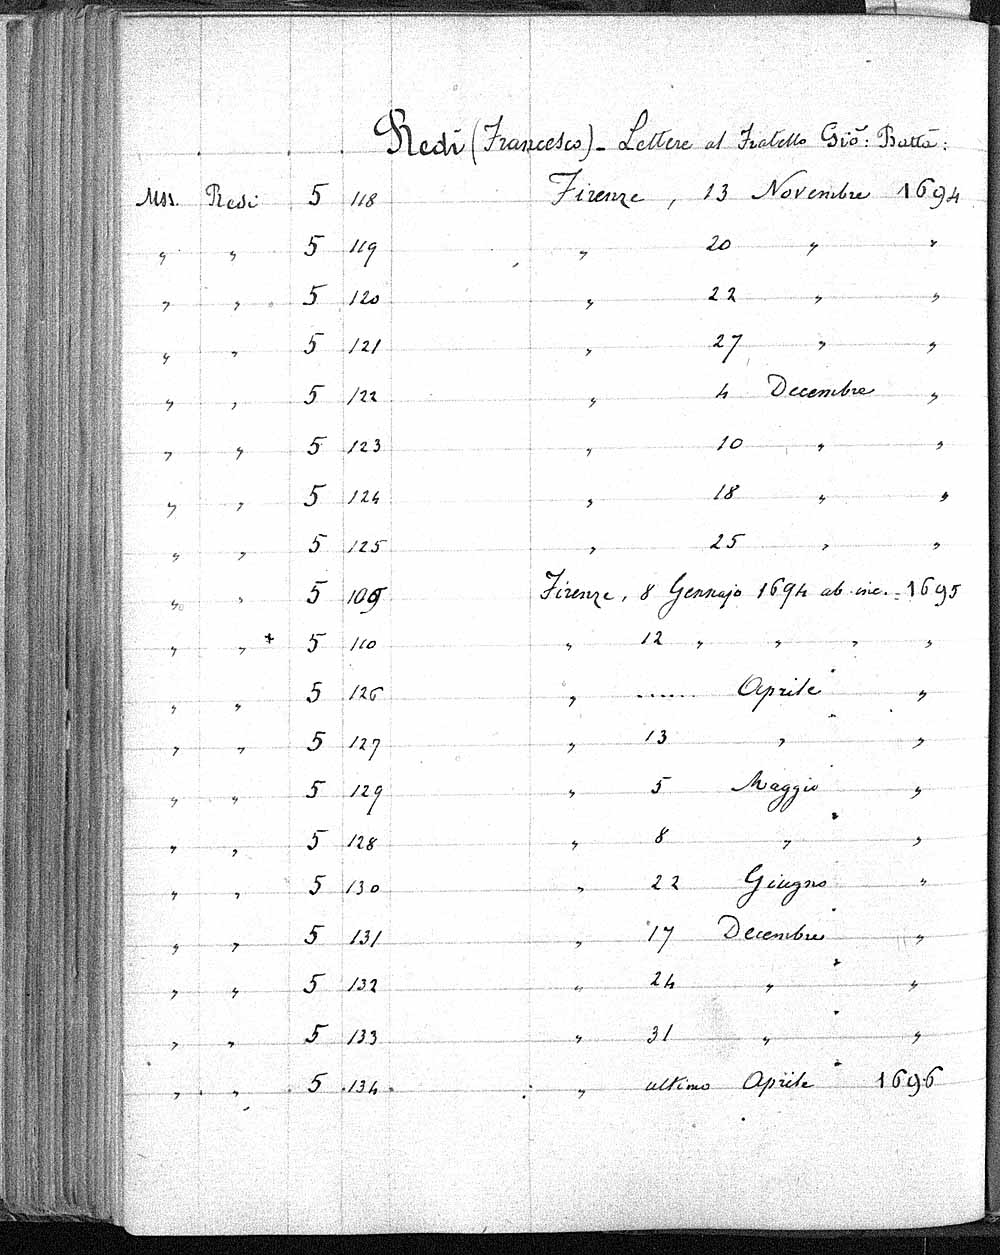 Redi (Francesco) - Lettere al Fratello Gio: Batta:
Mss. Redi 5 118 Firenze, 13 Novembre 1694
" " 5 119 " 20 " "
" " 5 120 " 22 " "
" " 5 121 " 27 " "
" " 5 122 " 4 Decembre "
" " 5 123 " 10 " "
" " 5 124 " 18 " "
" " 5 125 " 25 " "
" " 5 109 Firenze, 8 Gennajo 1694 ab inc. = 1695
" " + 5 110 " 12 " " " "
" " 5 126 " ...... Aprile "
" " 5 127 " 13 " "
" " 5 129 " 5 Maggio "
" " 5 128 " 8 " "
" " 5 130 " 22 Giugno "
" " 5 131 " 17 Decembre "
" " 5 132 " 24 " "
" " 5 133 " 31 " "
" " 5 134 " ultimo Aprile 1696